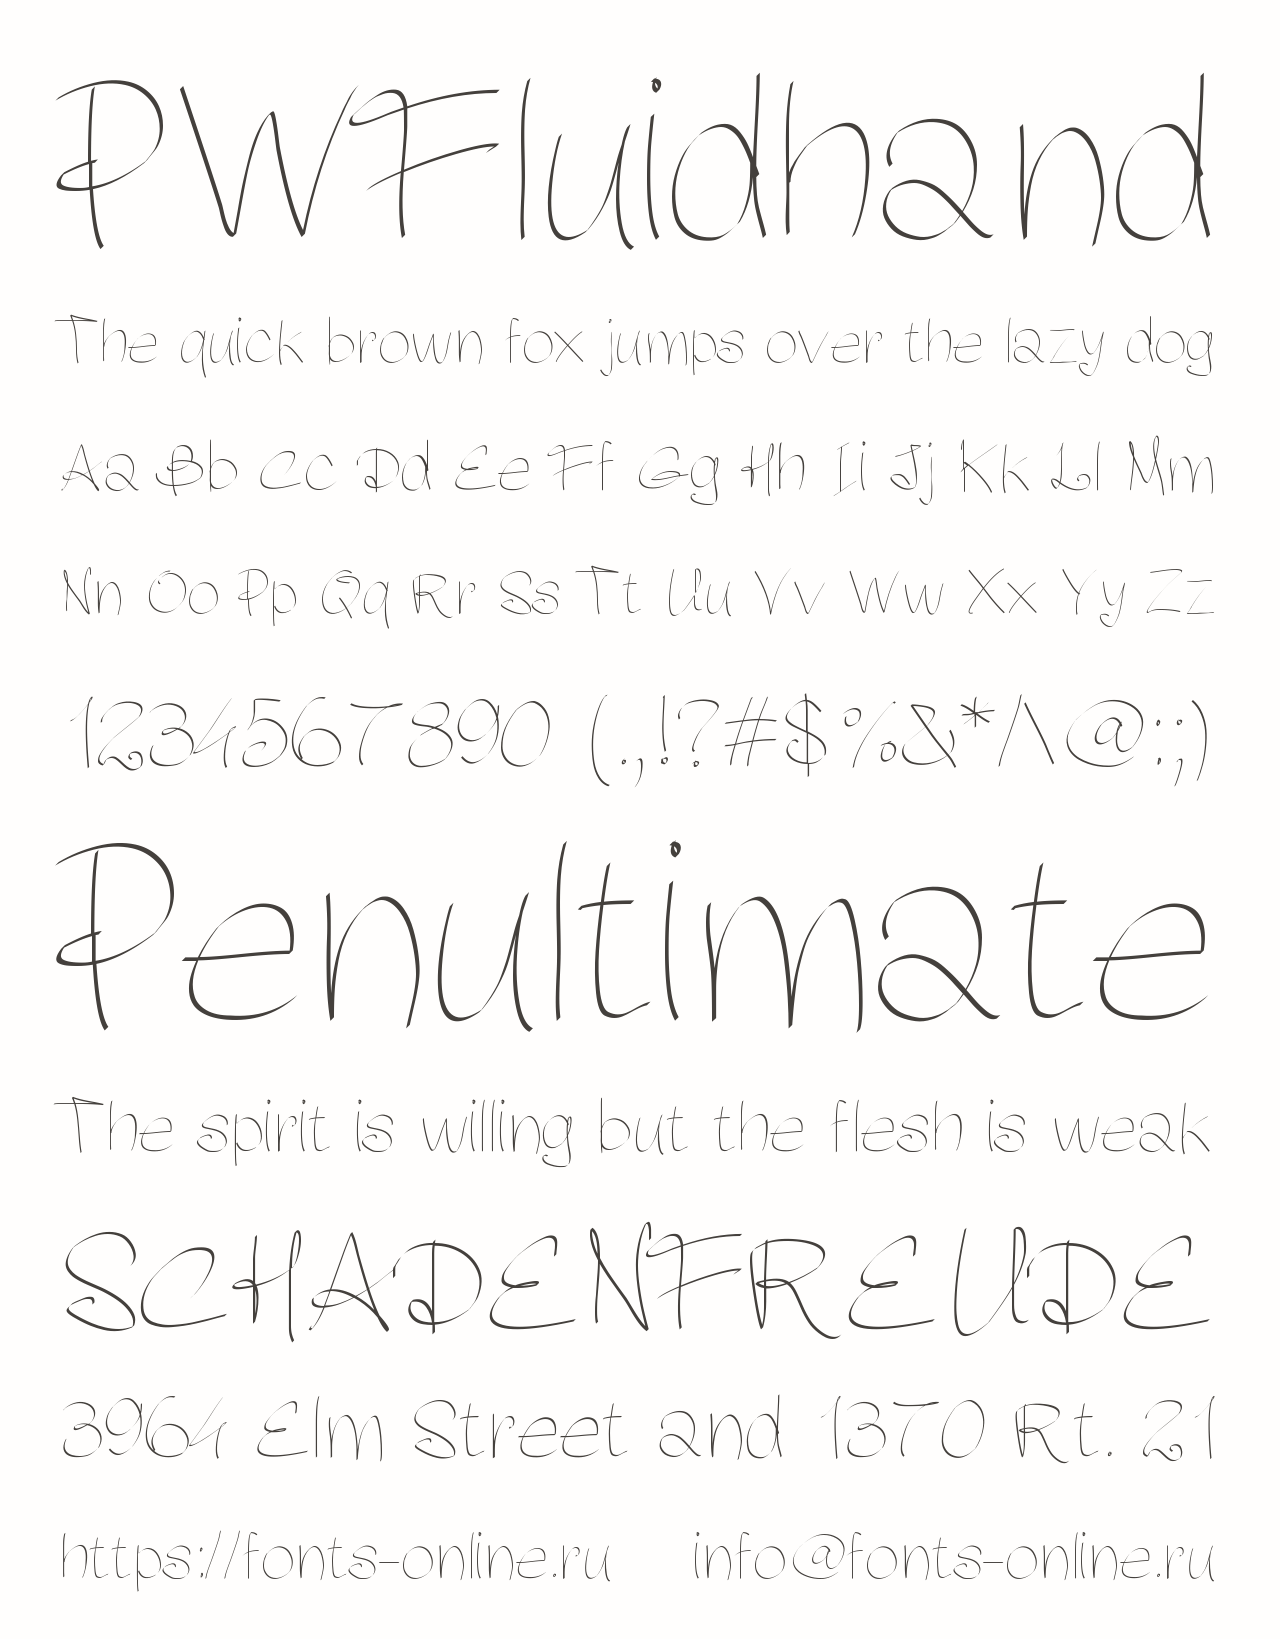 PWFluidhand
The quick brown fox jumps over the lazy dog
Aa Bb Cc Dd Ee Ff Gg Hh Ii Jj Kk Ll Mm
Nn Oo Pp Qq Rr Ss Tt Uu Vv Ww Xx Yy Zz
1234567890 (.,!?#$%&*/\@:;)
Penultimate
The spirit is willing but the flesh is weak
SCHADENFREUDE
3964 Elm Street and 1370 Rt. 21
https://fonts-online.ru info@fonts-online.ru